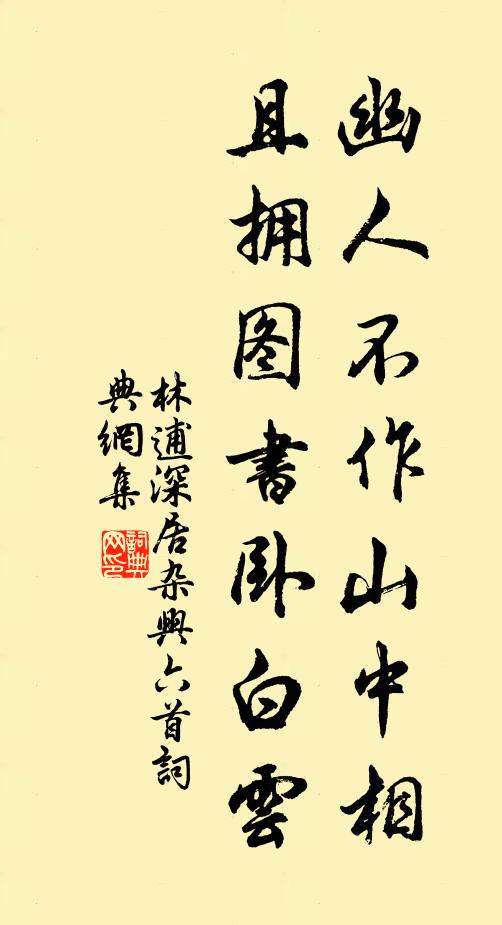 幽人不作山中相
且拥图書卧白雲
林逋深居杂興六首詞
典網集
詞典网印